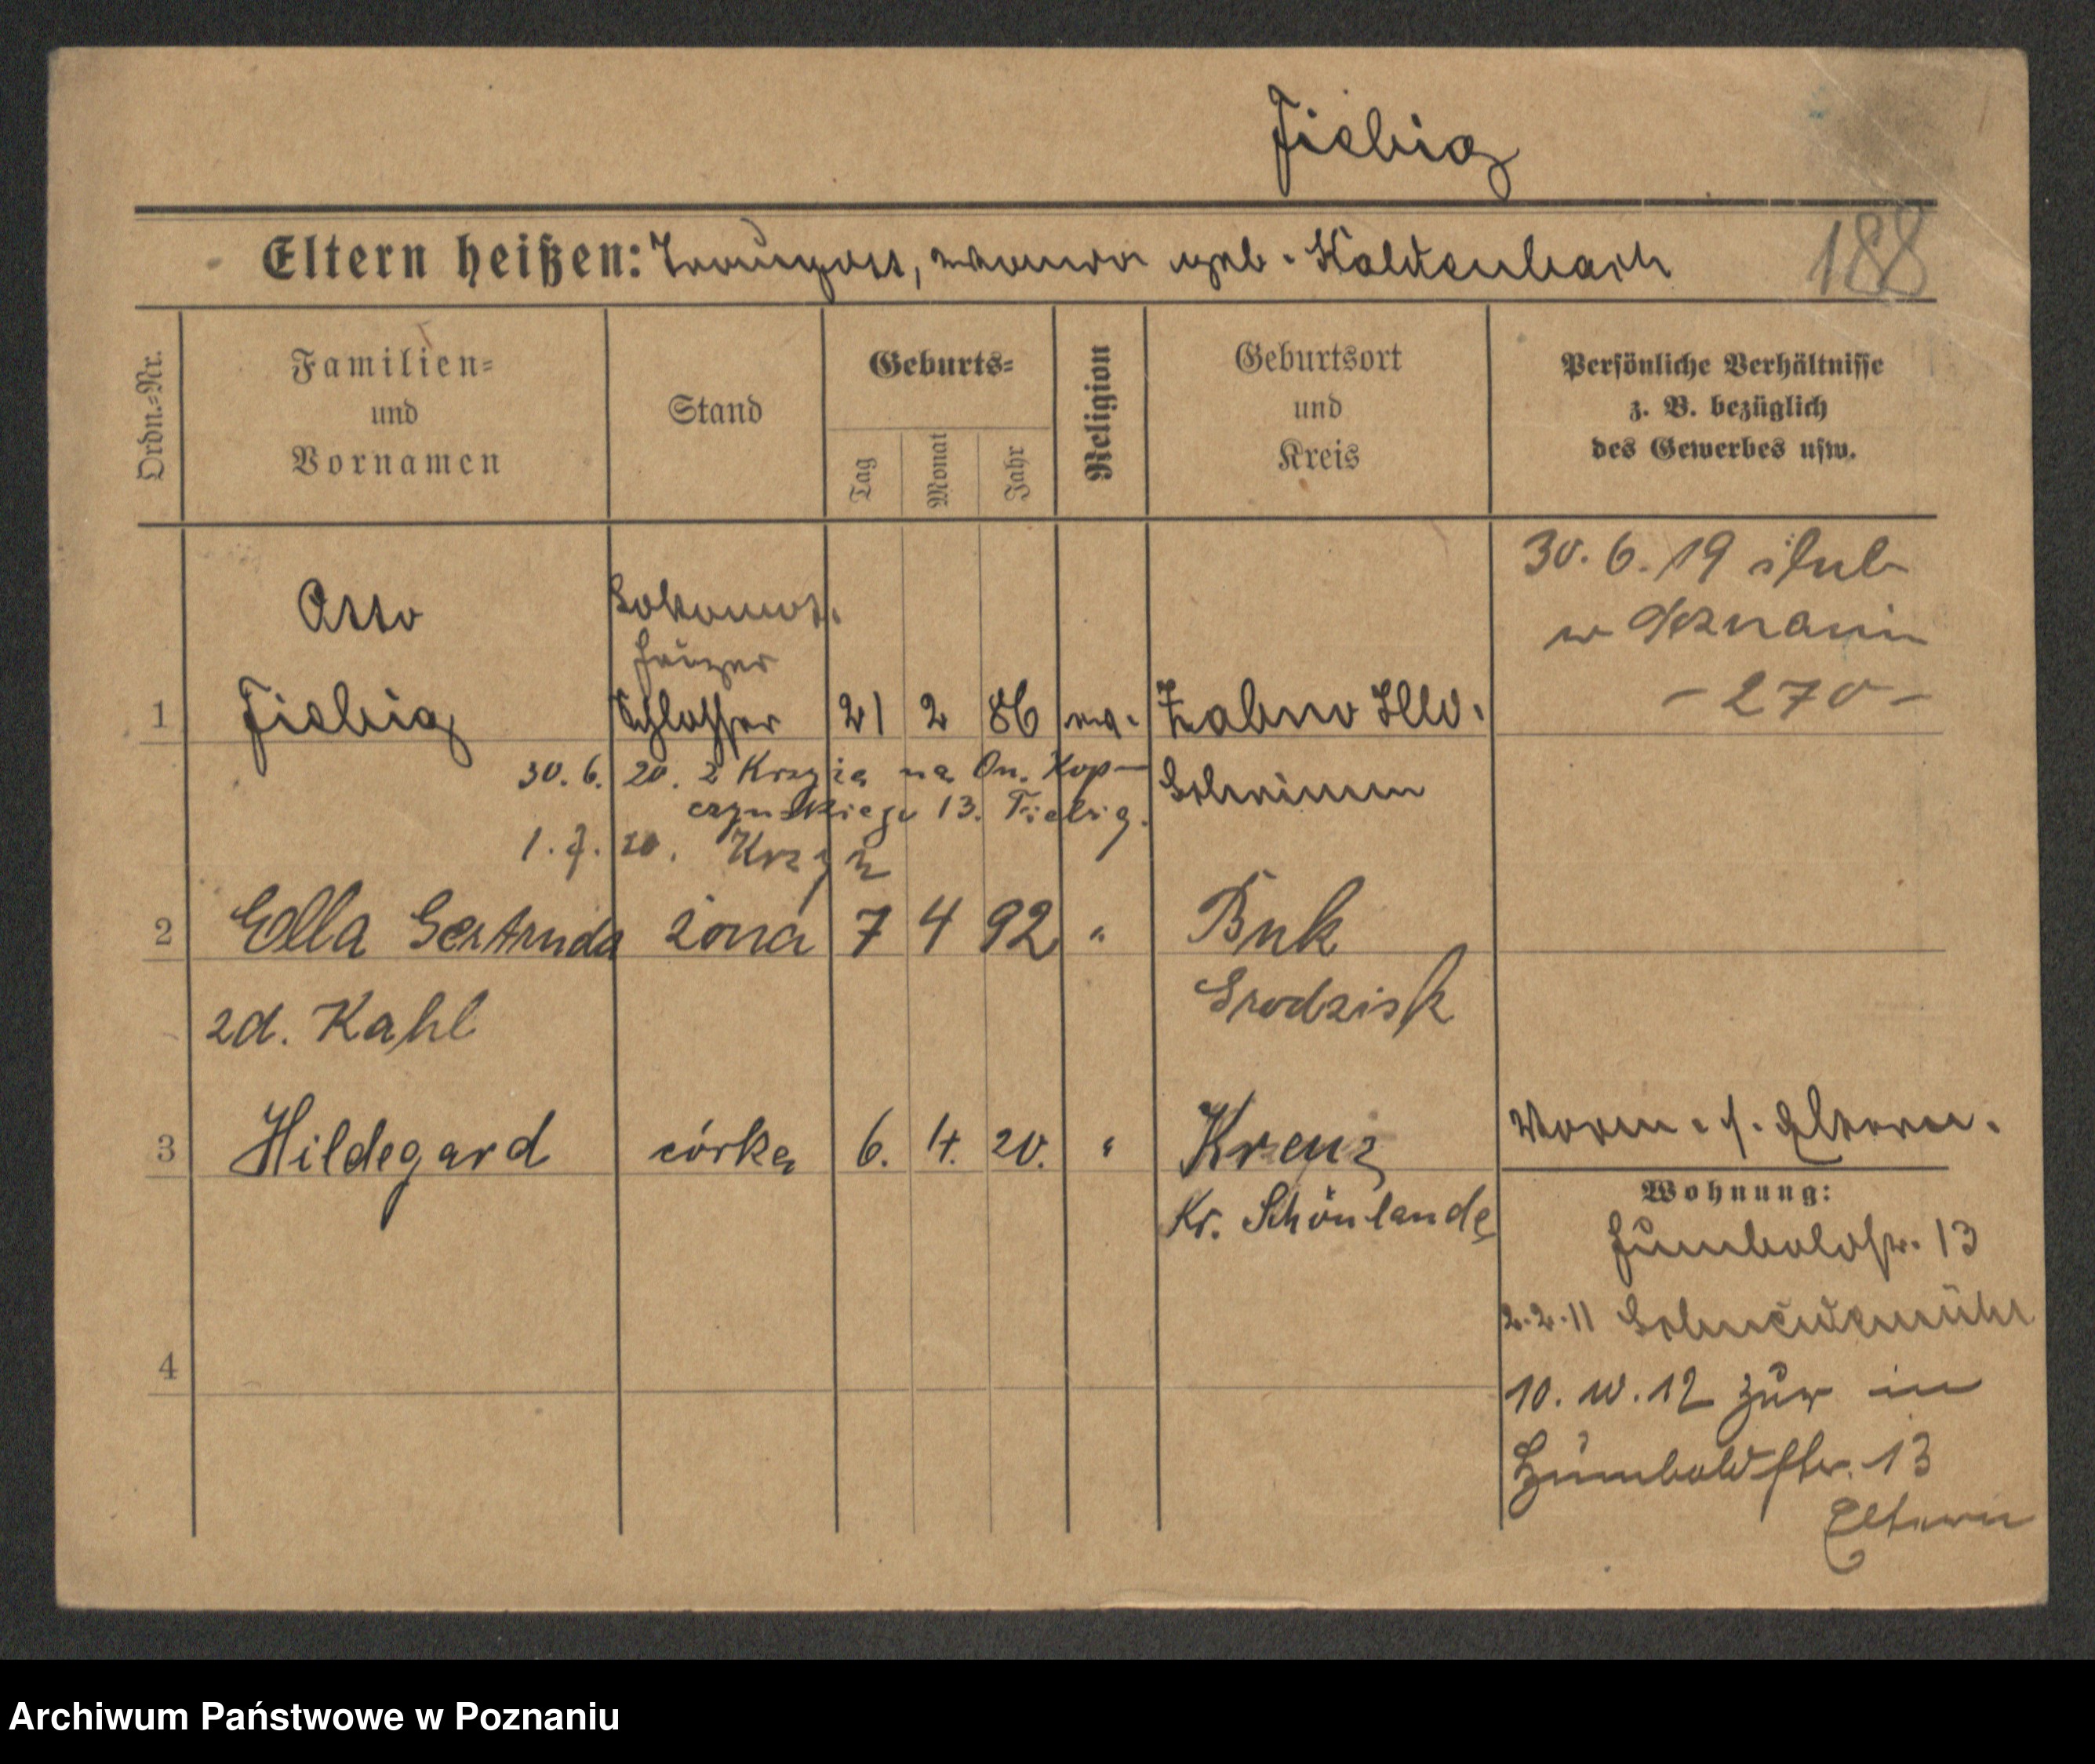 Fiebig
188
Eltern heißen: Traugott, geb. Kaldenbach
Ordn.=Nr.
Familien=
und
Vornamen
Stand
Geburts=
Tag
Monat
Jahr
Religion
Geburtsort
und
Kreis
Persönliche Verhältnisse
z. B. bezüglich
des Gewerbes usw.
30. 6. 19 ślub
w Poznaniu
- 270 -
Otto
Fiebig
Lokomot.
heizer
Schlosser
1
21 2 86 ev.
30. 6. 20. z Krzyża na On. Kop-
czyńskiego 13. Fiebig.
1. 7. 20. Krzyż
Schrimm
2 Ella Gertruda żona 7 4 92 " Buk
zd. Kahl
Grodzisk
3 Hildegard córka 6. 4. 20. " Kreuz
Kr. Schönlanke
Eltern.
Wohnung:
Humboldstr. 13
2.2.11 Schneidemühl
10. 10. 12 zur in
Humboldstr. 13
Eltern
4
Archiwum Państwowe w Poznaniu